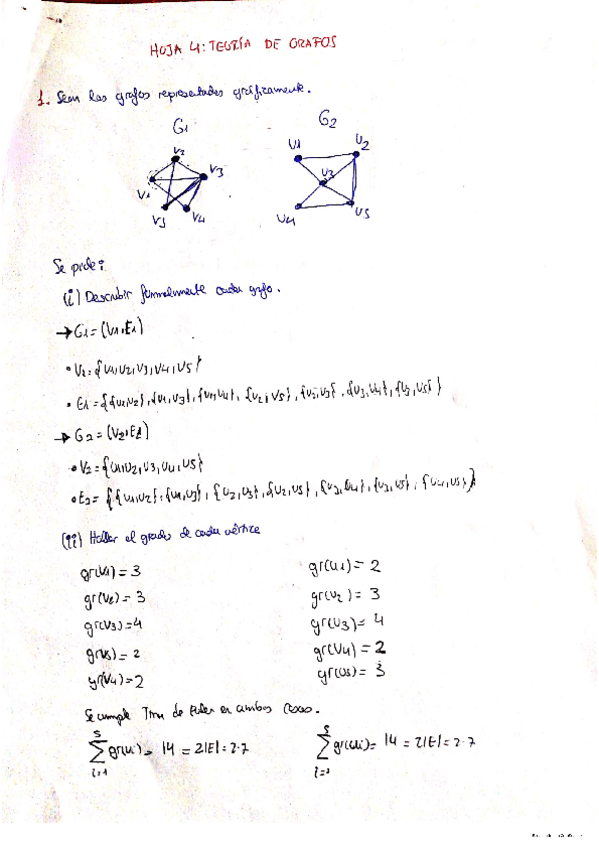 HOJA 4: TEORÍA DE GRAFOS
1. Sean los grafos representados gráficamente.
G1
G2
V2
V3
V1
V5
V4
U1
U2
U3
U4
U5
Se pide:
(i) Describir formalmente cada grafo.
→ G1 = (V1, E1)
• V1 = {v1, v2, v3, v4, v5}
• E1 = {{v1,v2}, {v1,v3}, {v1,v4}, {v2,v5}, {v2,v3}, {v3,v4}, {v3,v5}}
→ G2 = (V2, E2)
• V2 = {u1, u2, u3, u4, u5}
• E2 = {{u1,u2}, {u1,u3}, {u2,u3}, {u2,u5}, {u3,u4}, {u3,u5}, {u4,u5}}
(ii) Hallar el grado de cada vértice
gr(v1) = 3
gr(v2) = 3
gr(v3) = 4
gr(v5) = 2
gr(v4) = 2
gr(u1) = 2
gr(u2) = 3
gr(u3) = 4
gr(u4) = 2
gr(u5) = 3
Se cumple Tma de Euler en ambos casos.
5 ∑ i=1 gr(vi) = 14 = 2|E| = 2·7
5 ∑ i=1 gr(ui) = 14 = 2|E| = 2·7